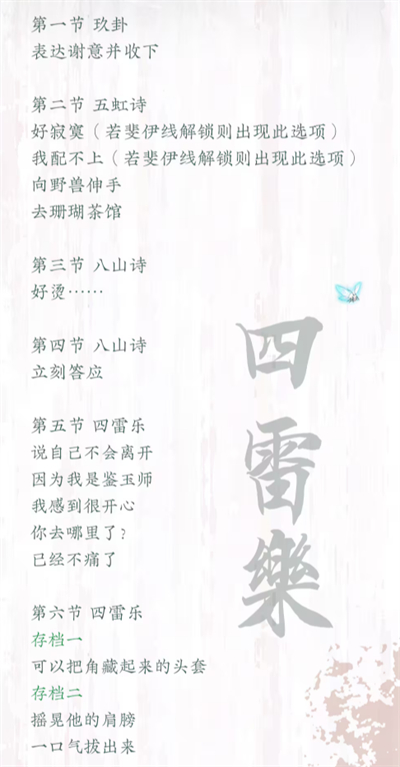 第一节 玖卦
表达谢意并收下
第二节 五虹诗
好寂寞（若斐伊线解锁则出现此选项）
我配不上（若斐伊线解锁则出现此选项）
向野兽伸手
去珊瑚茶馆
第三节 八山诗
好烫……
第四节 八山诗
立刻答应
第五节 四雷乐
说自己不会离开
因为我是鉴玉师
我感到很开心
你去哪里了？
已经不痛了
第六节 四雷乐
存档一
可以把角藏起来的头套
存档二
摇晃他的肩膀
一口气拔出来
四雷樂